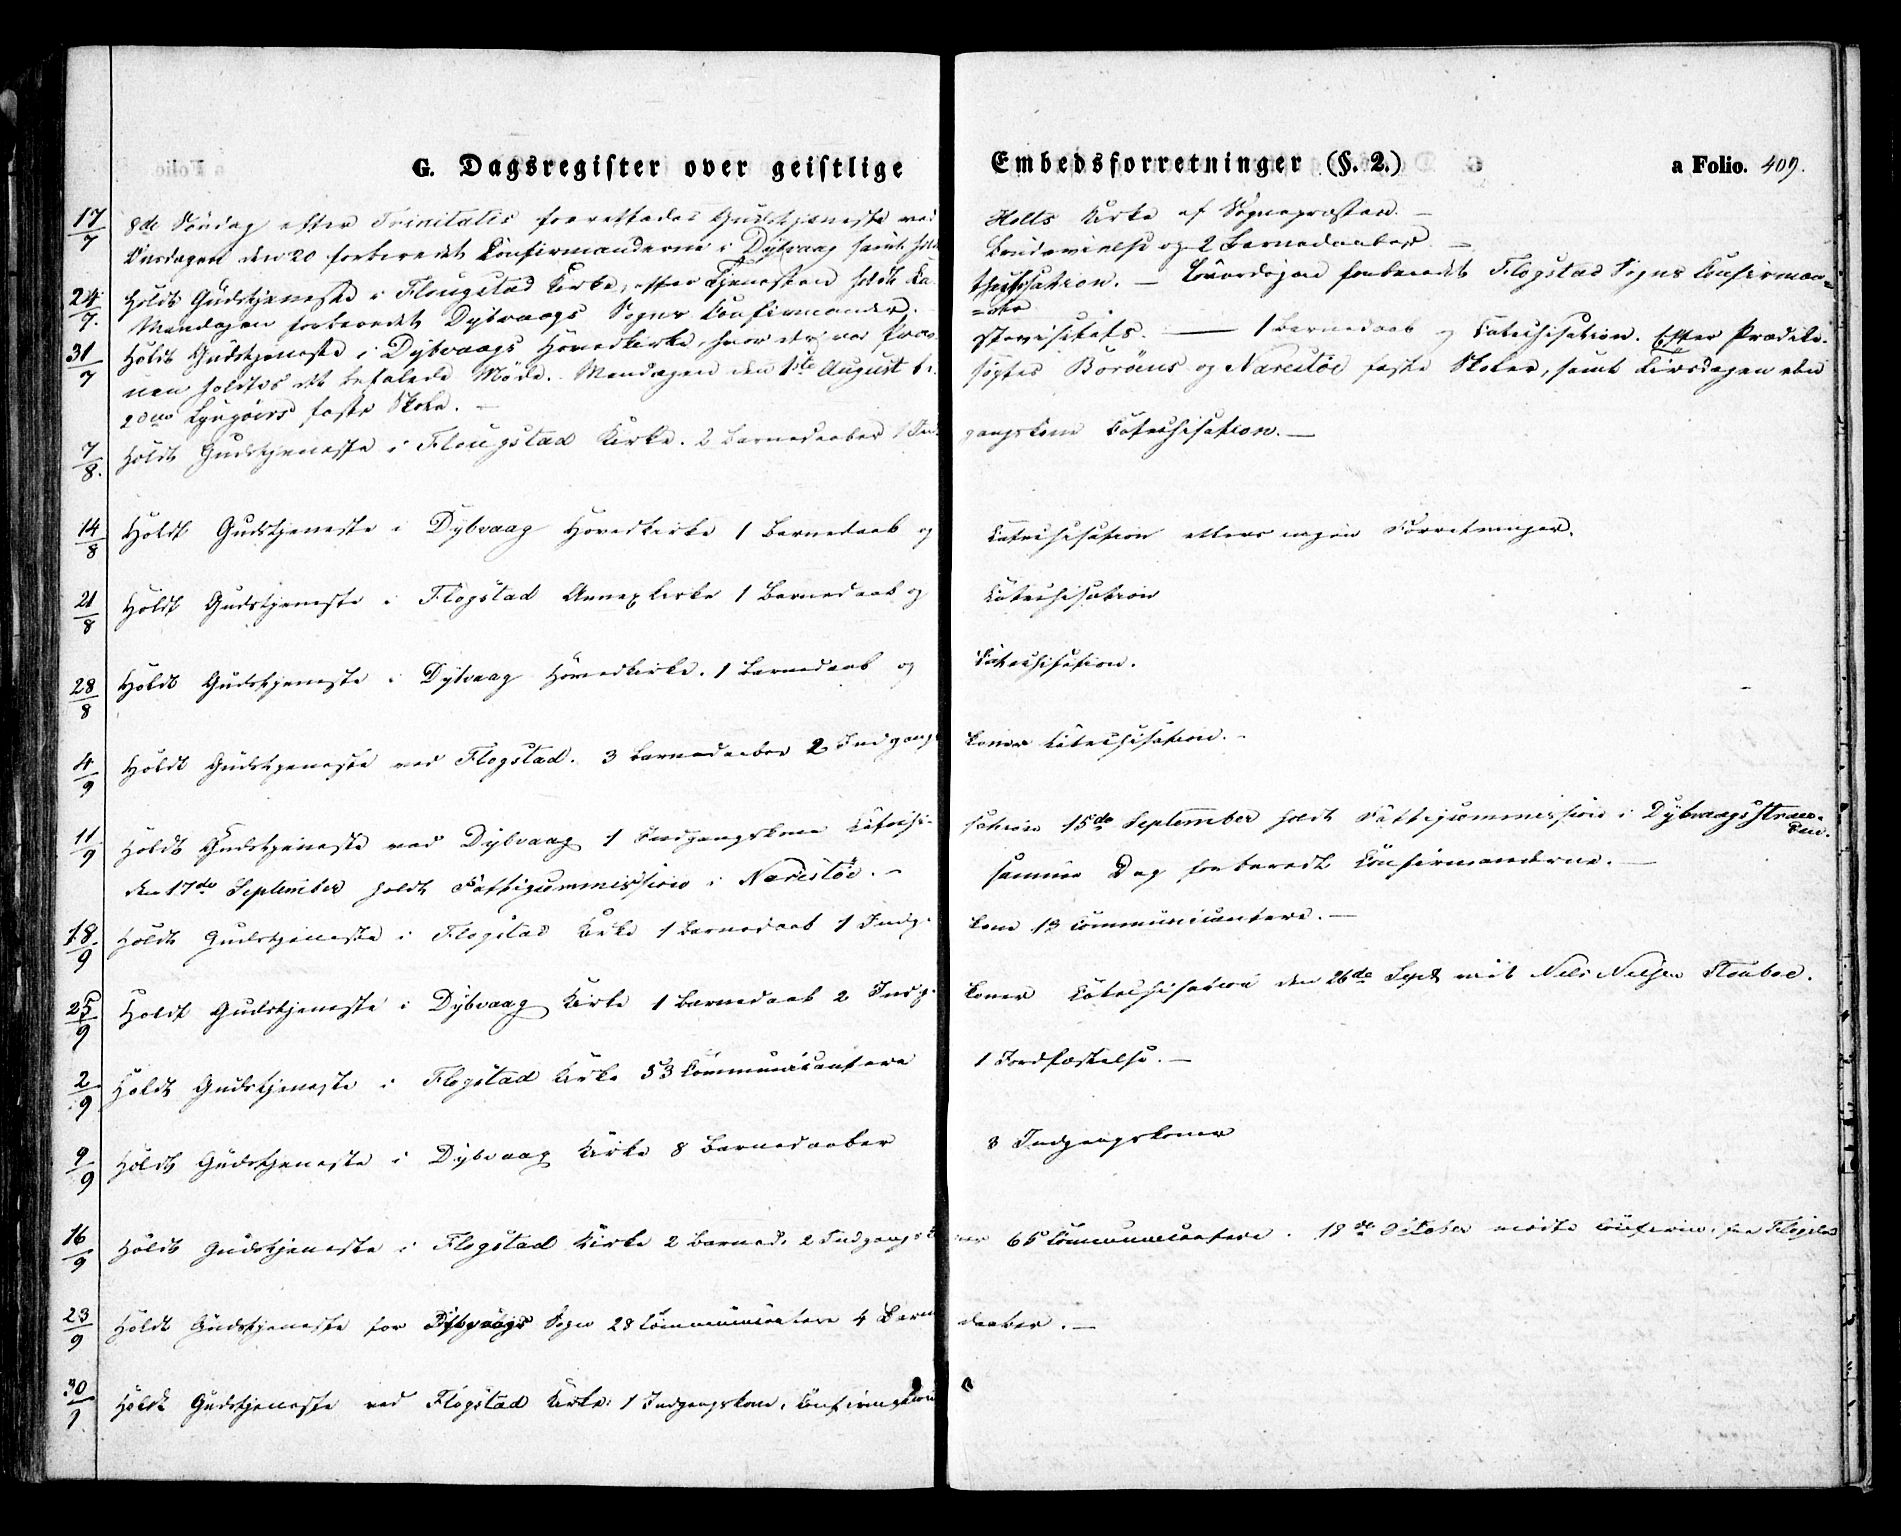 G. Dagsregister over geistlige Embedsforretninger (§. 2.) a Folio. 409.
17/7 8de Søndag efter Trinitatis forrettedes Gudstjeneste ved Holts Kirke af Sognepræsten. —
Onsdagen den 20 forberedt Confirmanderne i Dybvaag samt 2 Barnedaaber. —
24/7. Holdt Gudstjeneste i Flougstad Kirke, efter Tjenesten holdt Catechisation. — Løverdagen forberedt Flogstad Sogns Confirman=
Mandagen forberedt Dybvaags Sogns Confirmander. =der
31/7 Holdt Gudstjeneste i Dybvaags Hovedkirke, hvor der var Provstevisitats. — 1 Barnedaab og Catechisation. Efter Prædike-
nen holdtes det befalede Møde. Mandagen den 1ste August besøgtes Borøens og Narestøe faste Skoler, samt Tirsdagen den
2den Lyngøers faste Skole. —
7/8. Holdt Gudstjeneste i Flougstad Kirke. 2 Barnedaaber 1 Indgangskone Catechisation. —
14/8 Holdt Gudstjeneste i Dybvaag Hovedkirke 1 Barnedaab og Catechisation ellers ingen Forretninger.
21/8 Holdt Gudstjeneste i Flogstad Annexkirke 1 Barnedaab og Catechisation
28/8 Holdt Gudstjeneste i Dybvaag Hovedkirke. 1 Barnedaab og Catechisation.
4/9 Holdt Gudstjeneste ved Flogstad. 3 Barnedaaber 2 Indgangskoner Catechisation. -
11/9 Holdt Gudstjeneste ved Dybvaag 1 Indgangskone Catechisation 15de September holdt Fattigcommission i Dybvaagsstran-
den.
den 17de September holdt Fattigcommission i Narestøe. - samme Dag forberedt Confirmanderne. —
18/9 Holdt Gudstjeneste i Flogstad Kirke 1 Barnedaab 1 Indg. kone 13 Communicantere. —
25/9 Holdt Gudstjeneste i Dybvaag Kirke 1 Barnedaab 2 Indg. koner Catechisation den 26de Sept Nels Nielsen
2/9 Holdt Gudstjeneste i Flogstad Kirke 53 Communicantere 1 Jordfæstelse. —
9/9 Holdt Gudstjeneste i Dybvaag Kirke 8 Barnedaaber 8 Indgangskoner
16/9 Holdt Gudstjeneste i Flogstad Kirke 2 Barned. 2 Indgangskoner 65 Communicantere. 18de October mødte Confirm. fra Flogstad
23/9 Holdt Gudstjeneste for Dybvaags Sogn 28 Communicantere 4 Barnedaaber. —
30/9 Holdt Gudstjeneste ved Flogstad Kirke. 1 Indgangskone,